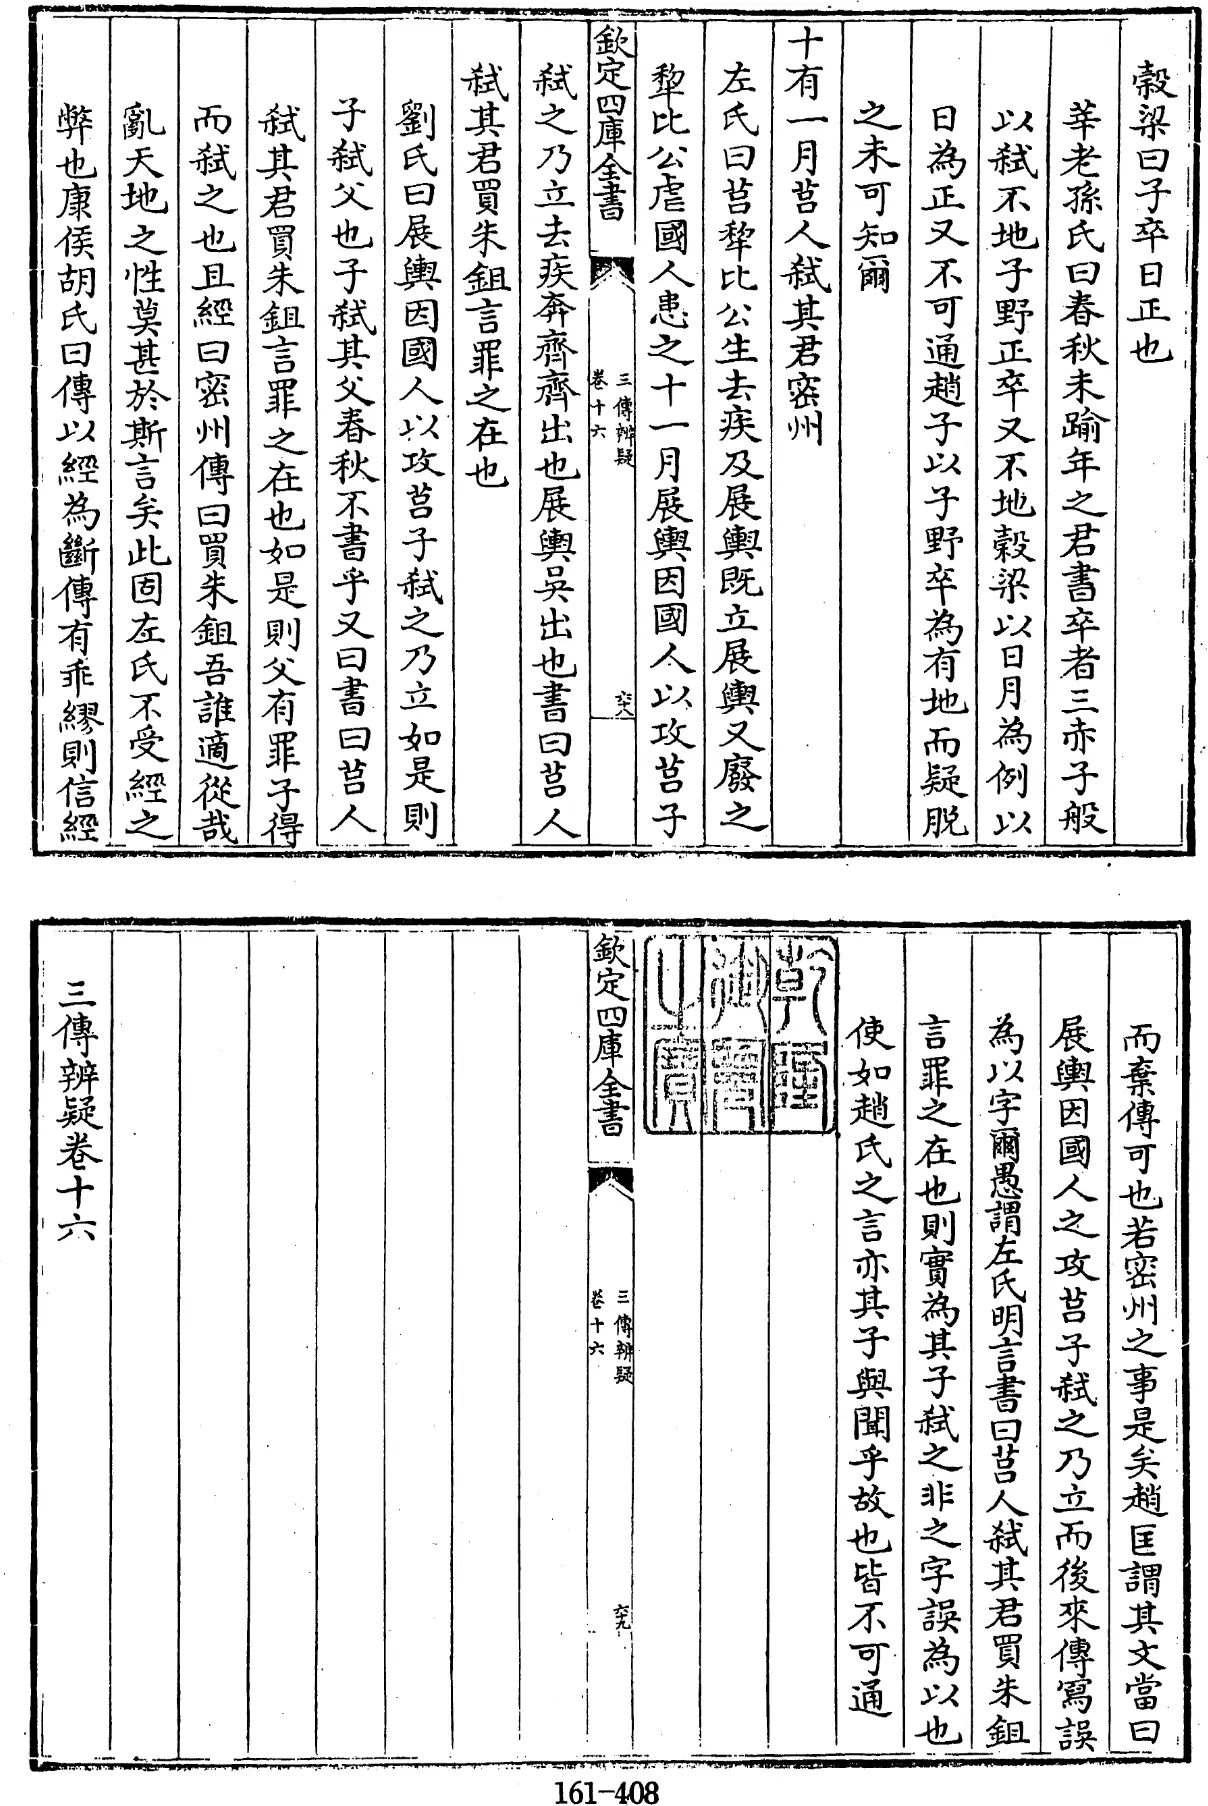 穀梁曰子卒日正也
莘老孫氏曰春秋未踰年之君書卒者三赤子般
以弑不地子野正卒又不地穀梁以日月為例以
日為正又不可通趙子以子野卒為有地而疑脱
之未可知爾
十有一月莒人弑其君密州
左氏曰莒犂比公生去疾及展輿既立展輿又廢之
犂比公虐國人患之十一月展輿因國人以攻莒子
欽定四庫全書
三傳辨疑
卷十六
六十八
弑之乃立去疾奔齊齊出也展輿吳出也書曰莒人
弑其君買朱鉏言罪之在也
劉氏曰展輿因國人以攻莒子弑之乃立如是則
子弑父也子弑其父春秋不書乎又曰書曰莒人
弑其君買朱鉏言罪之在也如是則父有罪子得
而弑之也且經曰密州傳曰買朱鉏吾誰適從哉
亂天地之性莫甚於斯言矣此固左氏不受經之
弊也康侯胡氏曰傳以經為斷傳有乖繆則信經
而棄傳可也若密州之事是矣趙匡謂其文當曰
展輿因國人之攻莒子弑之乃立而後來傳寫誤
為以字爾愚謂左氏明言書曰莒人弑其君買朱鉏
言罪之在也則實為其子弑之非之字誤為以也
使如趙氏之言亦其子與聞乎故也皆不可通
乾隆
御覽
之寶
欽定四庫全書
三傳辨疑
卷十六
六十九
三傳辨疑卷十六
161-408